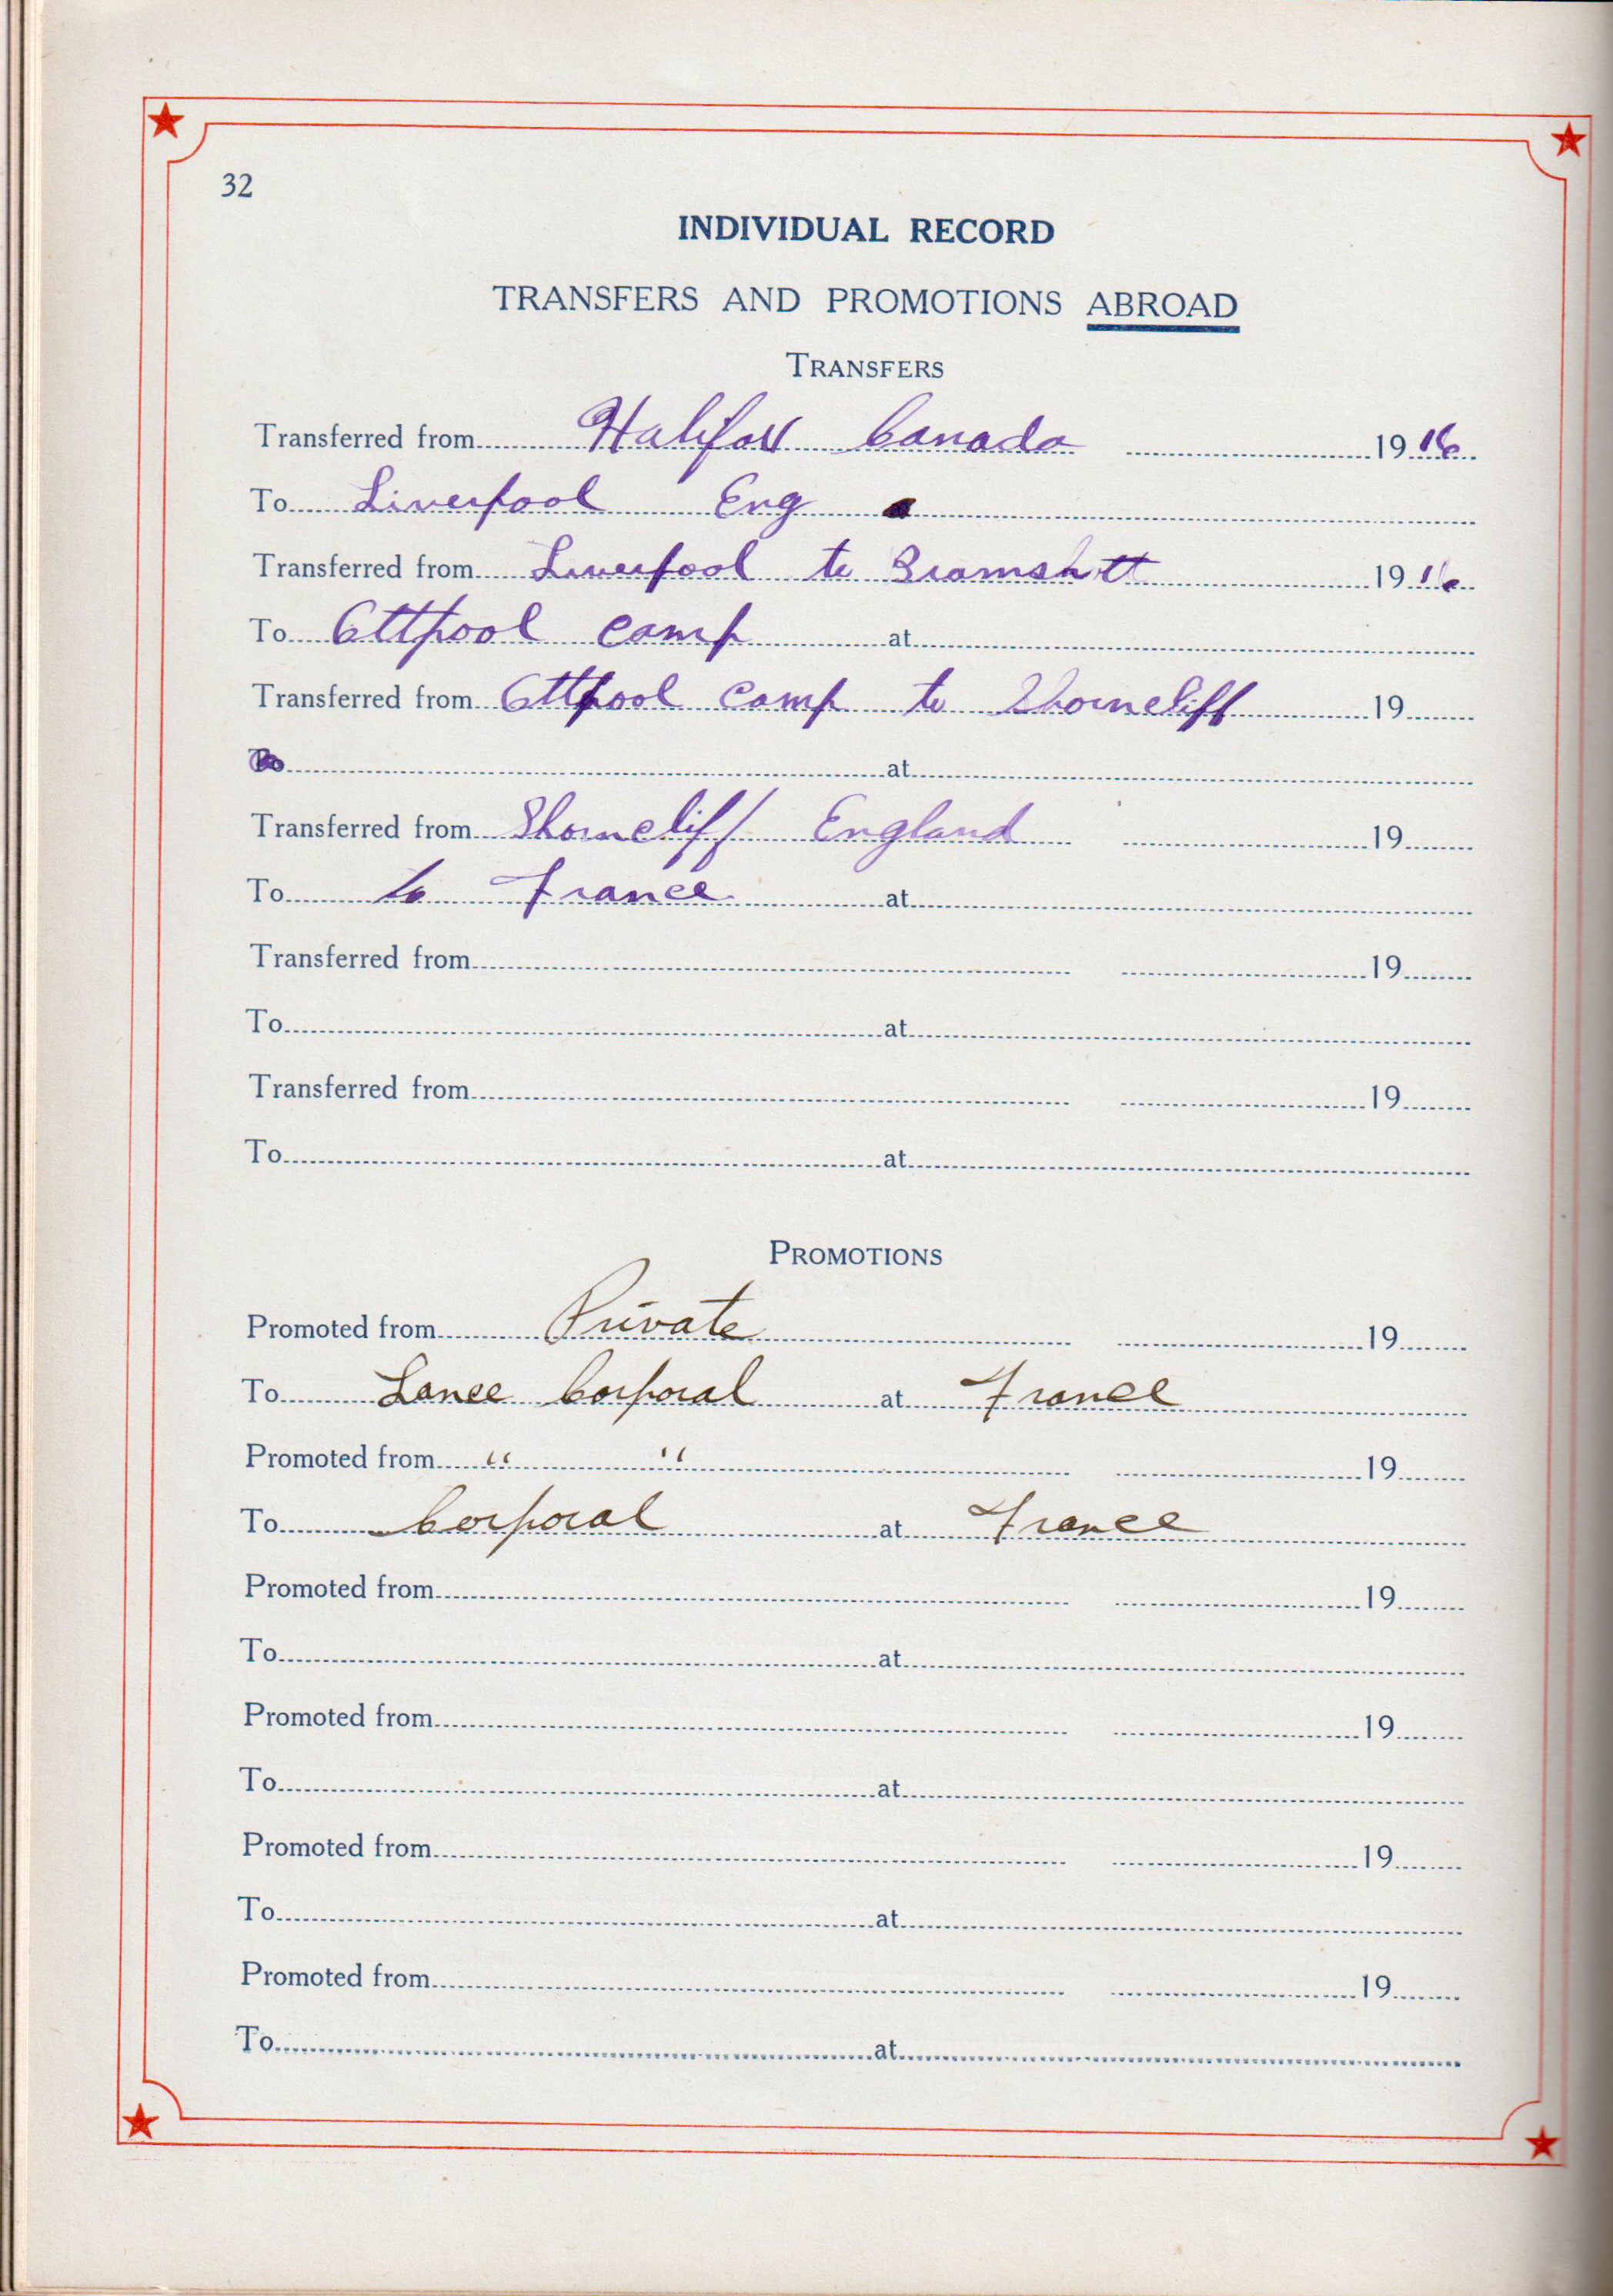 32
INDIVIDUAL RECORD
TRANSFERS AND PROMOTIONS ABROAD
TRANSFERS
Transferred from Halifax Canada 1916
To Liverpool Eng
Transferred from Liverpool to Bramshott 1916
To Ottpool camp at
Transferred from Ottpool camp to Shorncliff 19
To at
Transferred from Shorncliff England 19
To to France at
Transferred from 19
To at
Transferred from 19
To at
PROMOTIONS
Promoted from Private 19
To Lance Corporal at France
Promoted from " " 19
To Corporal at France
Promoted from 19
To at
Promoted from 19
To at
Promoted from 19
To at
Promoted from 19
To at